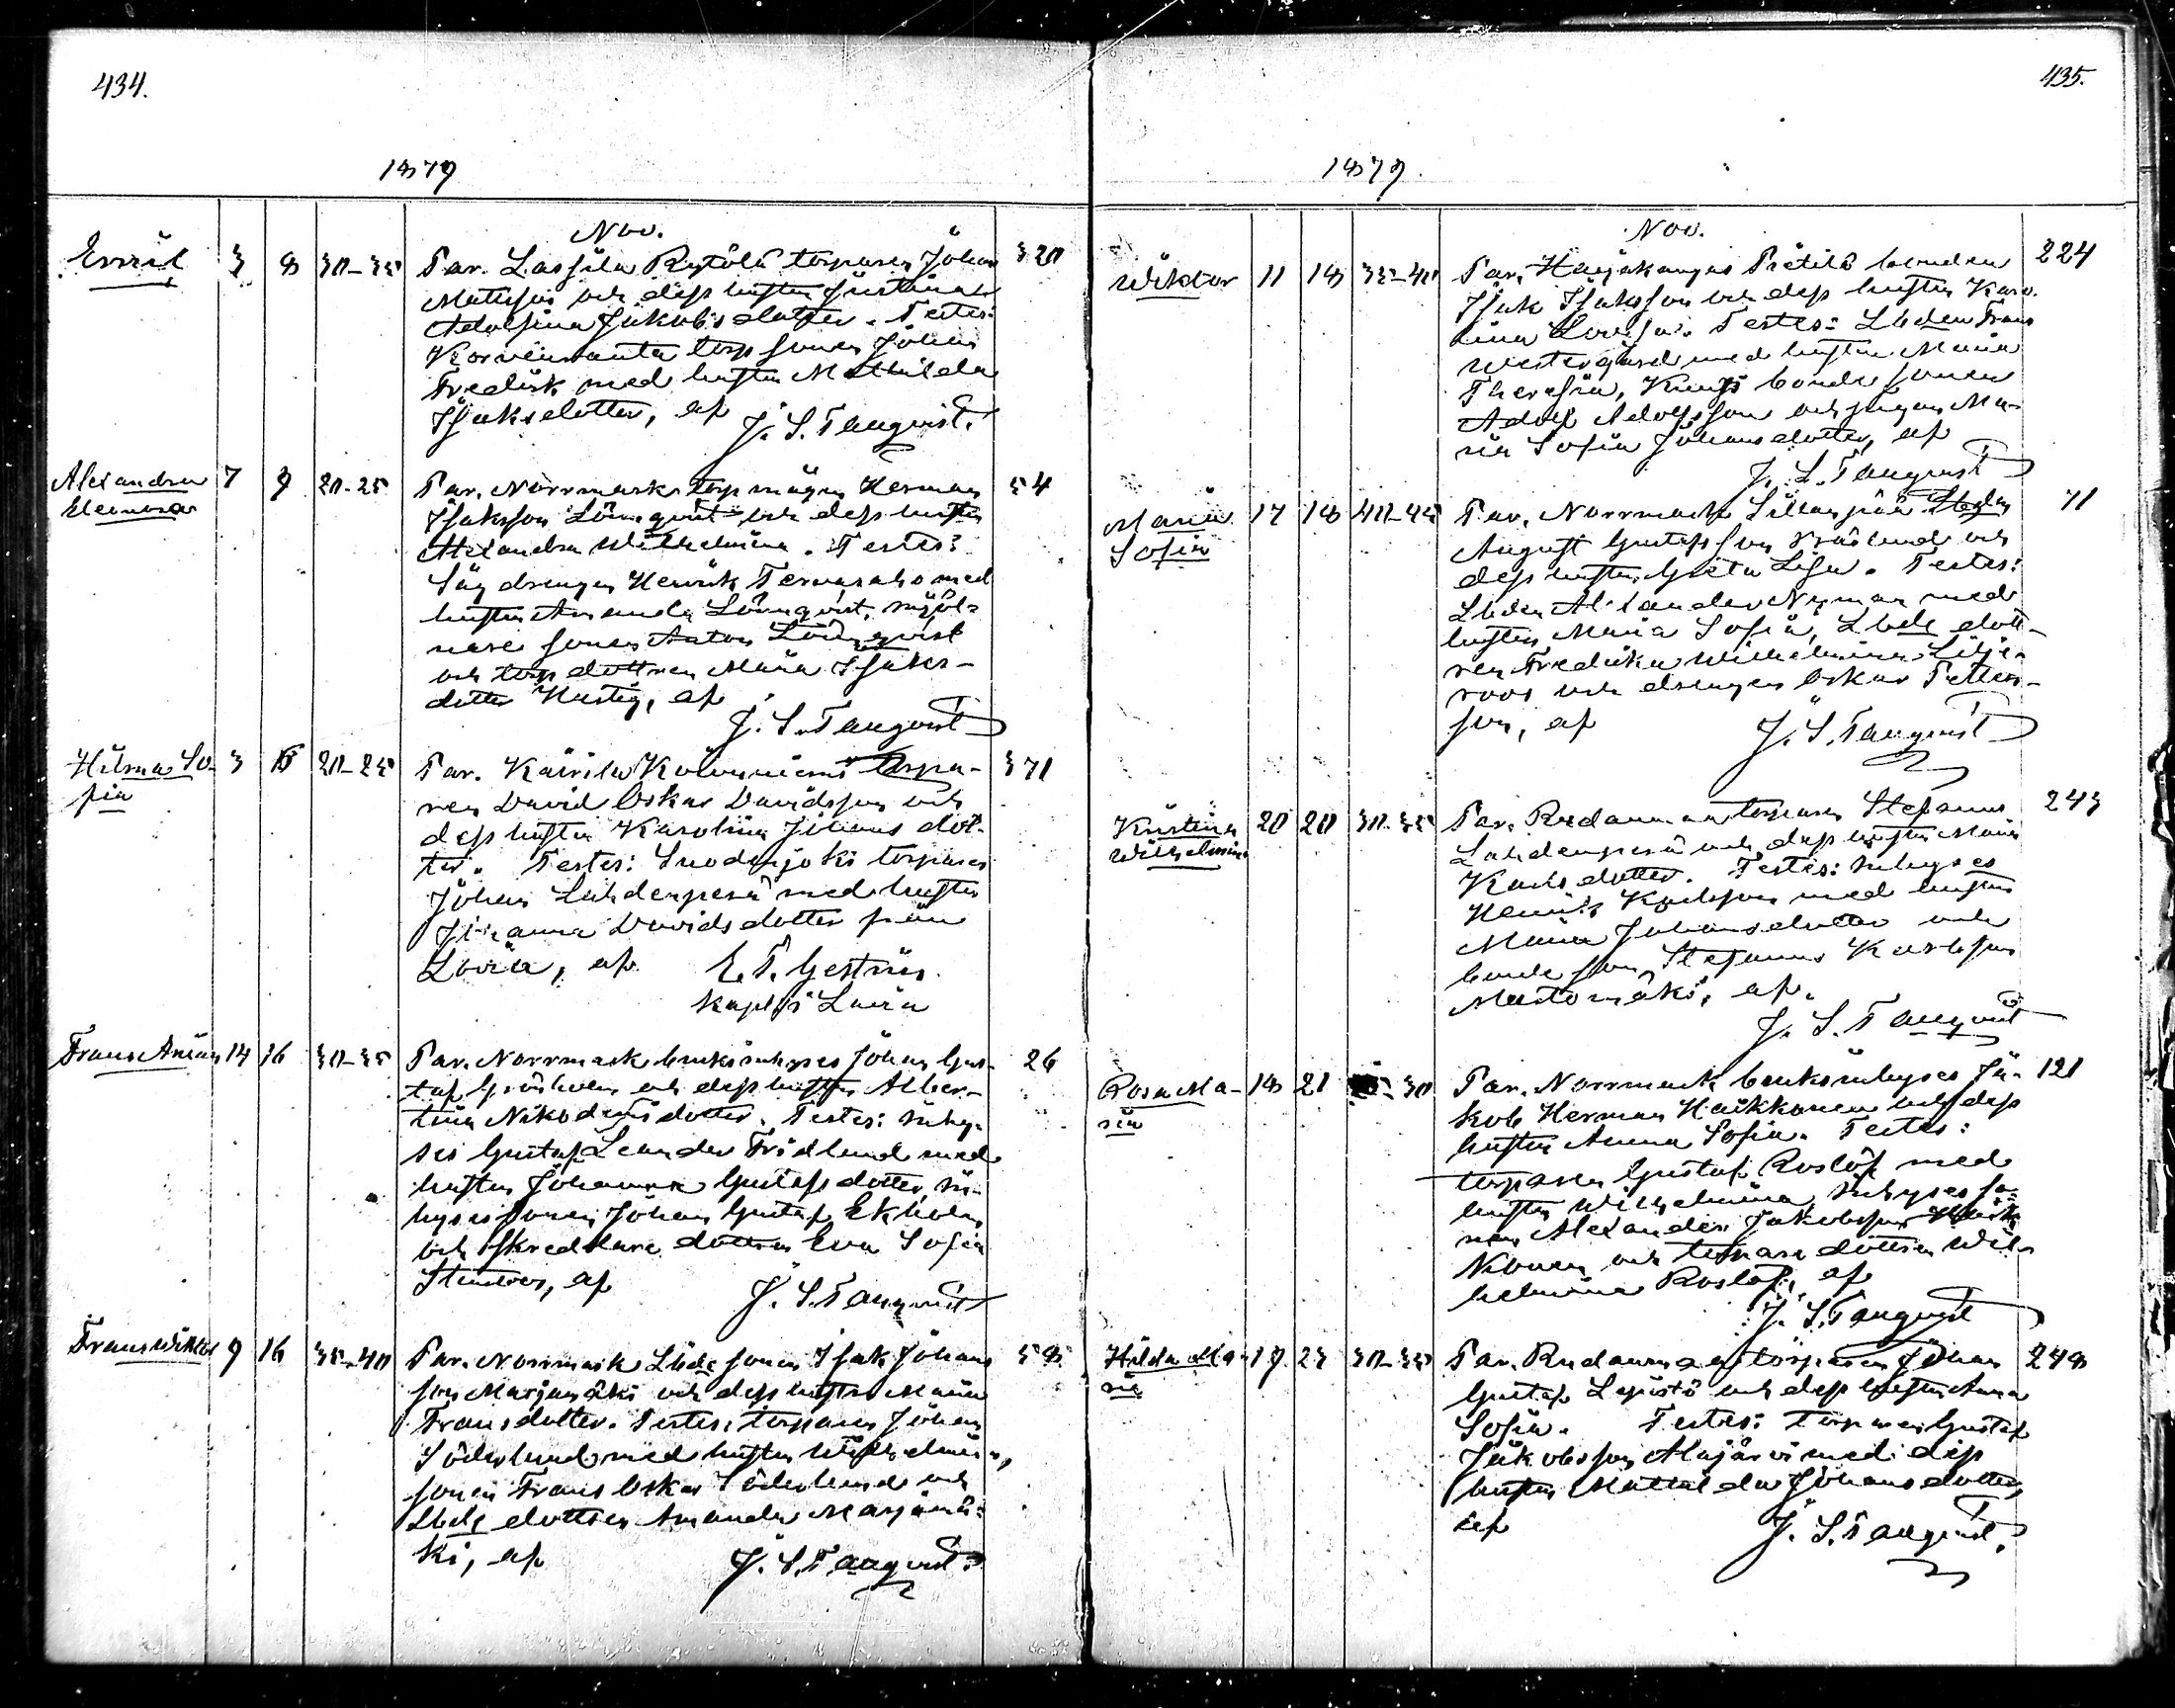 434.
1879
Nov.
Emil 3 8 30-35 Par. Lassila Rytölä torparen Johan 320
Mattsson och dess hustru Justina
Adolfina Jakobsdotter. Testes:
torp sonen Johan
Fredrik med hustru Mathilda
Isaksdotter, af J. S. Tanqvist.
Alexandra 7 9 20-25 Par. Norrmark torp mågen Herman 54
Eleonora
Isaksson Lönnqvist och dess hustru
Alexandra Wilhelmina. Testes:
Såg drengen Henrik Tervasaho med
hustru Amanda Lönnqvist, mjöl-
nare sonen Anton Lönnqvist
och torp dottren Maria Isaks-
dotter Hastig, af
J. S. Tanqvist
Hilma So- 3 15 20-25 Par. Kairila torpa- 371
fia
ren David Oskar Davidsson och
dess hustru Karolina Johans dot-
ter. Testes: Suodenjoki torparen
Johan Lahdenperä med hustru
Johanna Davidsdotter från
Lavia, af E. T. Gestrin.
kapl. i Lavia
Frans Anian 14 16 30-35 Par. Norrmark bruksinhyses Johan Gus- 26
taf Grönholm och dess hustru Alber-
tina Nikodemidotter. Testes: Inhy-
ses Gustaf Leander Fridlund med
hustru Johanna Gustafsdotter, in-
hyses sonen Johan Gustaf Ekholm
och skreddare dottren Eva Sofia
Stenroos, af J. S. Tanqvist
Frans Wiktor 9 16 35-40 Par. Norrmark Lbde sonen Isak Johans 58
son Marjamäki och dess hustru Maria
Fransdotter. Testes: torparen Johan
Söderlund med hustru Wilhelmina,
sonen Frans Oskar Söderlund och
Lbde dottren Amanda Marjamä-
ki, af J. S. Tanqvist.
435.
1879.
Nov.
Wiktor 11 18 35-40 Par. Harjakangas Prätilä bonden 224
Isak Isaksson och dess hustru Karo-
lina Lovisa. Testes: Lbden Frans
Westergård med hustru Maria
Theresia, Kungs bonde sonen
Adolf Adolfsson och pigan Ma-
ria Sofia Johansdotter, af
J. S. Tanqvist
Maria 17 18 40-45 Par. Norrmark Sillanpää 71
Sofia
August Gustafsson och
dess hustru Greta Lisa. Testes:
Lbden Alexander Nyman med
hustru Maria Sofia, Lbde dott-
ren Fredrika Wilhelmina Lilje-
roos och drengen Oskar Petters-
son, af J. S. Tanqvist
Kristina 20 20 30-35 Par. Rudanmaa torparen Stefanus 243
Wilhelmina
Lahdenperä och dess hustru Maria
Karlsdotter. Testes: Inhyses
Henrik Karlsson med hustru
Maria Johansdotter och
bonde son Stefanus Karlsson
Mustamäki, af.
J. S. Tanqvist
Rosa Ma- 18 21 -30 Par. Norrmark bruksinhyses Ja- 121
ria
kob Herman Haikkonen och dess
hustru Anna Sofia. Testes:
torparen Gustaf Roslöf med
hustru Wilhelmina, inhyses so-
nen Alexander Jakobsson Haik
konen och torpare dottren Wil-
helmina Roslöf, af
J. S. Tanqvist
Hilda Ma- 19 23 30-35 Par. Rudanmaa torparen Johan 248
ria
Gustaf Lepistö och dess hustru Anna
Sofia. Testes: torparen Gustaf
Jakobsson Alajärvi med dess
hustru Matilda Johansdotter,
af J. S. Tanqvist.